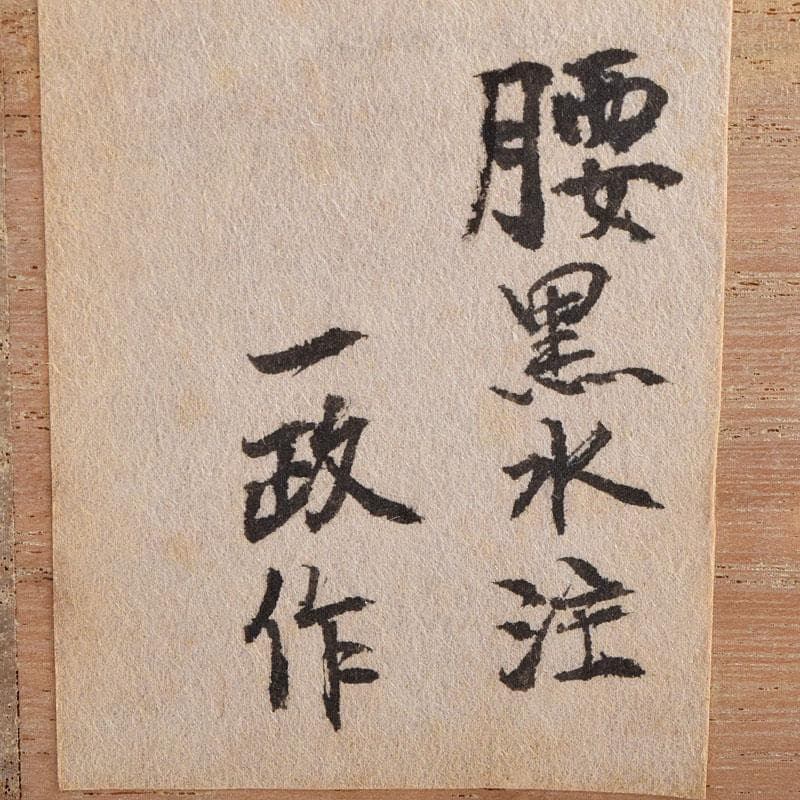 腰黒水注
一政作